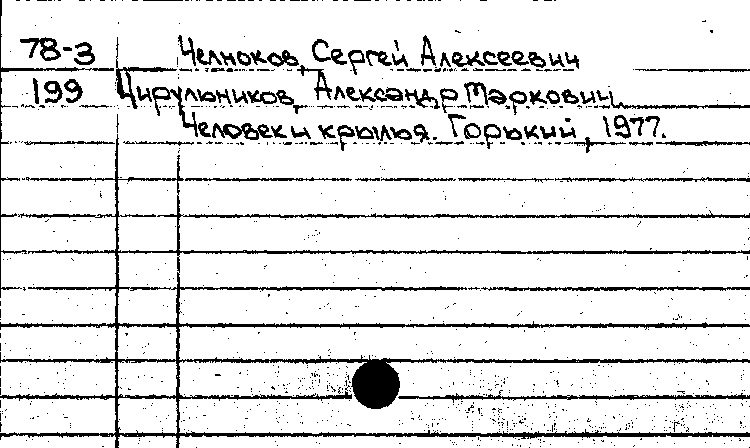 78-3 Челноков, Сергей Алексеевич
199 Цирульников, Александр Маркович.
Человек и крылья. Горький, 1977.